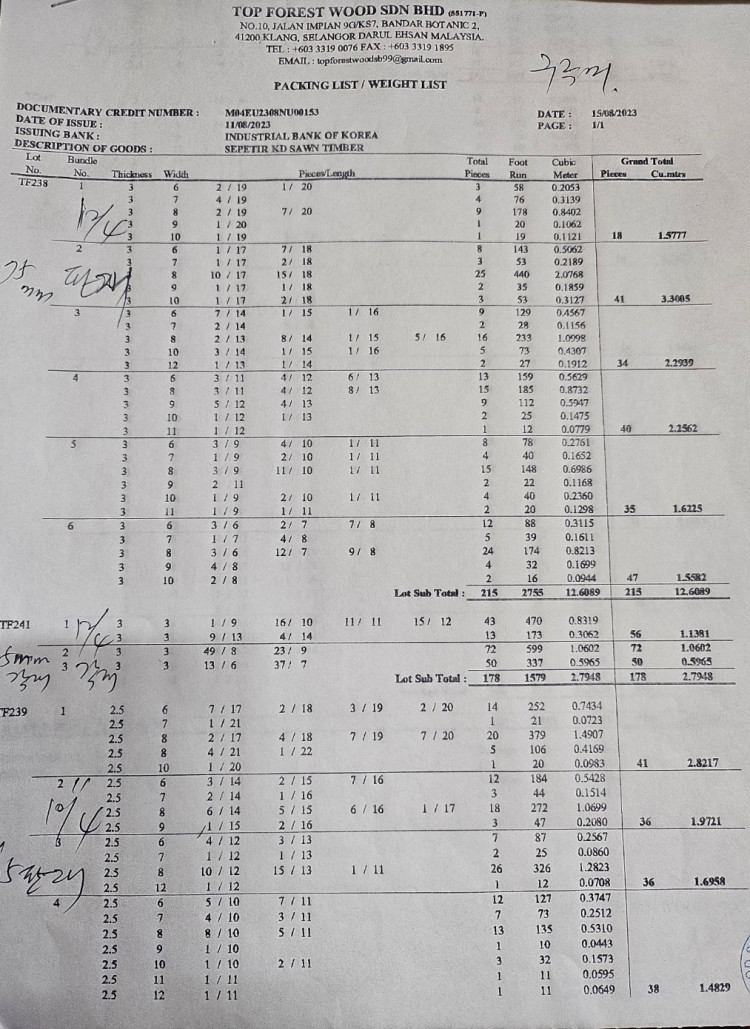 TOP FOREST WOOD SDN BHD (551771-P)
NO.10, JALAN IMPIAN 9G/KS7, BANDAR BOTANIC 2,
41200 KLANG, SELANGOR DARUL EHSAN MALAYSIA.
TEL : +603 3319 0076 FAX : +603 3319 1895
EMAIL : topforestwoodsb99@gmail.com
PACKING LIST / WEIGHT LIST
DOCUMENTARY CREDIT NUMBER : M04EU2308NU00153 DATE : 15/08/2023
DATE OF ISSUE : 11/08/2023 PAGE : 1/1
ISSUING BANK : INDUSTRIAL BANK OF KOREA
DESCRIPTION OF GOODS : SEPETIR KD SAWN TIMBER
Lot Bundle Total Foot Cubic Grand Total
No. No. Thickness Width Pieces/Length Pieces Run Meter Pieces Cu.mtrs
TF238 1 3 6 2 / 19 1 / 20 3 58 0.2053
3 7 4 / 19 4 76 0.3139
3 8 2 / 19 7 / 20 9 178 0.8402
3 9 1 / 20 1 20 0.1062
3 10 1 / 19 1 19 0.1121 18 1.5777
12/4
2 3 6 1 / 17 7 / 18 8 143 0.5062
3 7 1 / 17 2 / 18 3 53 0.2189
8 10 / 17 15 / 18 25 440 2.0768
3 9 1 / 17 1 / 18 2 35 0.1859
3 10 1 / 17 2 / 18 3 53 0.3127 41 3.3005
3 3 6 7 / 14 1 / 15 1 / 16 9 129 0.4567
3 7 2 / 14 2 28 0.1156
3 8 2 / 13 8 / 14 1 / 15 5 / 16 16 233 1.0998
3 10 3 / 14 1 / 15 1 / 16 5 73 0.4307
3 12 1 / 13 1 / 14 2 27 0.1912 34 2.2939
4 3 6 3 / 11 4 / 12 6 / 13 13 159 0.5629
3 8 3 / 11 4 / 12 8 / 13 15 185 0.8732
3 9 5 / 12 4 / 13 9 112 0.5947
3 10 1 / 12 1 / 13 2 25 0.1475
3 11 1 / 12 1 12 0.0779 40 2.2562
5 3 6 3 / 9 4 / 10 1 / 11 8 78 0.2761
3 7 1 / 9 2 / 10 1 / 11 4 40 0.1652
3 8 3 / 9 11 / 10 1 / 11 15 148 0.6986
3 9 2 11 2 22 0.1168
3 10 1 / 9 2 / 10 1 / 11 4 40 0.2360
3 11 1 / 9 1 / 11 2 20 0.1298 35 1.6225
6 3 6 3 / 6 2 / 7 7 / 8 12 88 0.3115
3 7 1 / 7 4 / 8 5 39 0.1611
3 8 3 / 6 12 / 7 9 / 8 24 174 0.8213
3 9 4 / 8 4 32 0.1699
3 10 2 / 8 2 16 0.0944 47 1.5582
Lot Sub Total : 215 2755 12.6089 215 12.6089
TF241 1 3 3 1 / 9 16 / 10 11 / 11 15 / 12 43 470 0.8319
12/4
3 3 9 / 13 4 / 14 13 173 0.3062 56 1.1381
2 3 3 49 / 8 23 / 9 72 599 1.0602 72 1.0602
3 3 3 13 / 6 37 / 7 50 337 0.5965 50 0.5965
Lot Sub Total : 178 1579 2.7948 178 2.7948
TF239 1 2.5 6 7 / 17 2 / 18 3 / 19 2 / 20 14 252 0.7434
2.5 7 1 / 21 1 21 0.0723
2.5 8 2 / 17 4 / 18 7 / 19 7 / 20 20 379 1.4907
2.5 8 4 / 21 1 / 22 5 106 0.4169
2.5 10 1 / 20 1 20 0.0983 41 2.8217
2 2.5 6 3 / 14 2 / 15 7 / 16 12 184 0.5428
2.5 7 2 / 14 1 / 16 3 44 0.1514
10/4
2.5 8 6 / 14 5 / 15 6 / 16 1 / 17 18 272 1.0699
2.5 9 1 / 15 2 / 16 3 47 0.2080 36 1.9721
3 2.5 6 4 / 12 3 / 13 7 87 0.2567
2.5 7 1 / 12 1 / 13 2 25 0.0860
2.5 8 10 / 12 15 / 13 1 / 11 26 326 1.2823
2.5 12 1 / 12 1 12 0.0708 36 1.6958
4 2.5 6 5 / 10 7 / 11 12 127 0.3747
2.5 7 4 / 10 3 / 11 7 73 0.2512
2.5 8 8 / 10 5 / 11 13 135 0.5310
2.5 9 1 / 10 1 10 0.0443
2.5 10 1 / 10 2 / 11 3 32 0.1573
2.5 11 1 / 11 1 11 0.0595
2.5 12 1 / 11 1 11 0.0649 38 1.4829